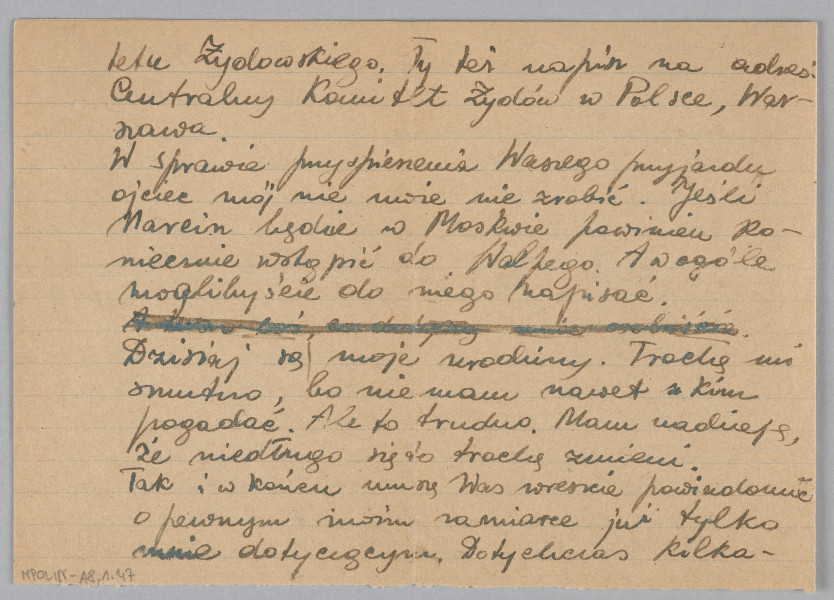 tetu Żydowskiego. Ty też napisz na adres:
Centralny Komitet Żydów w Polsce, War-
szawa.
W sprawie przyspieszenia Waszego przyjazdu
ojciec mój nie może nic zrobić. Jeśli
Marcin będzie w Moskwie powinien ko-
niecznie wstąpić do . A w ogóle
moglibyście do niego napisać.
Dzisiaj są moje urodziny. Trochę mi
smutno, bo nie mam nawet z kim
pogadać. Ale to trudno. Mam nadzieję,
że niedługo się to trochę zmieni.
Tak i w końcu muszę Was wreszcie powiadomić
o pewnym moim zamiarze już tylko
mnie dotyczącym. Dotychczas kilka-
MPOLIN-A8.1.47